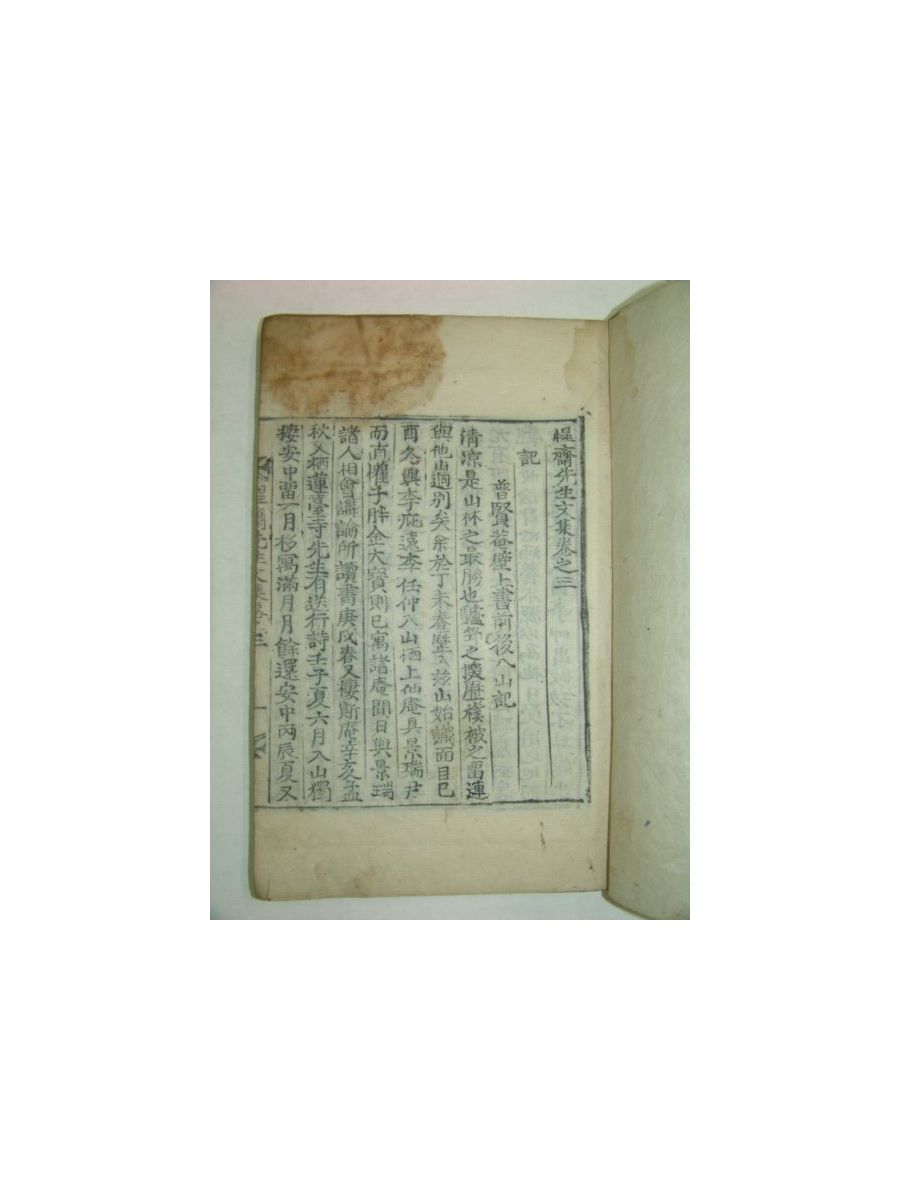 惺齋先生文集卷之三
記
普賢菴壁上書前後入山記
清凉是山林之最勝也驢笻之 歷襆被之留連
與他山逈別矣余於丁未春蹔入玆山始識面目己
酉冬與李庇遠李任仲入山栖上仙庵具景瑞尹
而直權子胖金大寶則已寓諸庵間日與景瑞
諸人相會講論所讀書庚戌春又棲斯庵辛亥孟
秋又栖蓮臺寺先生有送行詩壬子夏六月入山獨
棲安中留一月移寓滿月月餘還安中丙辰夏又
惺齋先生文集卷三 一